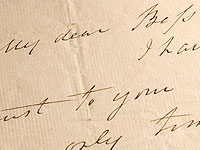 My dear Bess
I hav
ust to your
only tim